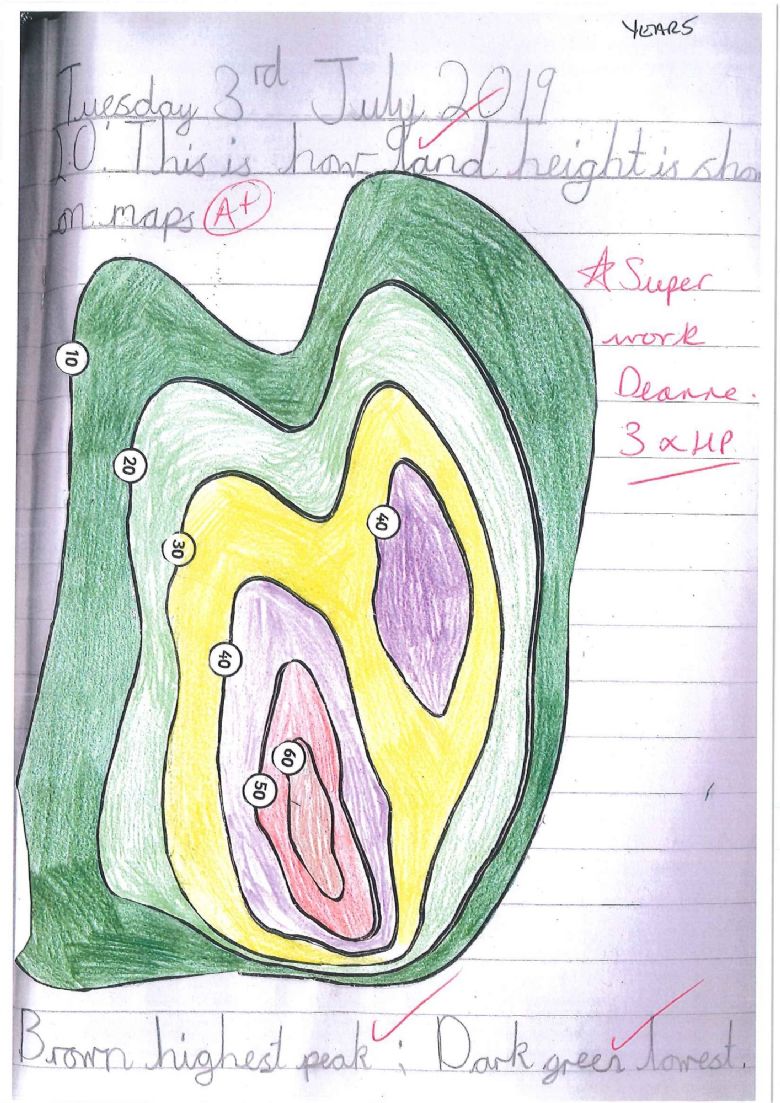 YEAR 5
Tuesday 3rd July 2019
LO: This is how land height is sho
on maps A+
☆ Super
work
Deanne.
3 x HP
10
20
30
40
40
60
50
Brown highest peak ; Dark green lowest.